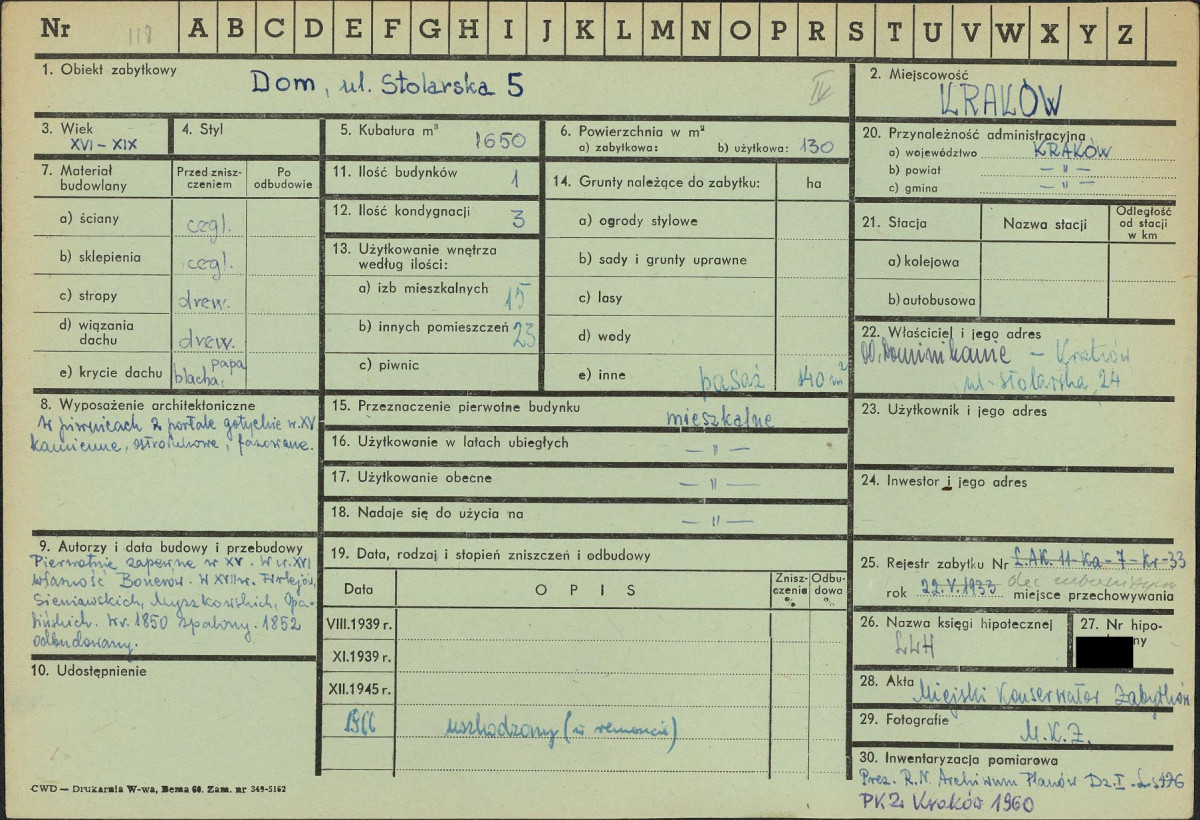 Nr 118 A B C D E F G H I J K L M N O P R S T U V W X Y Z
1. Obiekt zabytkowy
Dom, ul. Stolarska 5
IV
2. Miejscowość
KRAKÓW
3. Wiek
XVI – XIX
4. Styl
5. Kubatura m³
1650
6. Powierzchnia w m²
a) zabytkowa: b) użytkowa: 130
20. Przynależność administracyjna
a) województwo KRAKÓW
b) powiat — " —
c) gmina — " —
7. Materiał budowlany
Przed zniszczeniem
Po odbudowie
a) ściany cegl.
b) sklepienia cegl.
c) stropy drew.
d) wiązania dachu drew.
e) krycie dachu blacha, papa
11. Ilość budynków 1
12. Ilość kondygnacji 3
13. Użytkowanie wnętrza
według ilości:
a) izb mieszkalnych 15
b) innych pomieszczeń 23
c) piwnic
14. Grunty należące do zabytku: ha
a) ogrody stylowe
b) sady i grunty uprawne
c) lasy
d) wody
e) inne pasaż 140 m²
21. Stacja
Nazwa stacji
Odległość
od stacji
w km
a) kolejowa
b) autobusowa
22. Właściciel i jego adres
OO. Dominikanie – Kraków
ul. Stolarska 24
8. Wyposażenie architektoniczne
W piwnicach 2 portale gotyckie w. XV
kamienne, ostrołukowe, fazowane.
15. Przeznaczenie pierwotne budynku mieszkalne
16. Użytkowanie w latach ubiegłych — " —
17. Użytkowanie obecne — " —
18. Nadaje się do użycia na — " —
23. Użytkownik i jego adres
24. Inwestor i jego adres
9. Autorzy i data budowy i przebudowy
Pierwotnie zapewne w XV. W w. XVI
własność Bonerów. W XVII w. Firlejów,
Sieniawskich, Myszkowskich, Opa-
lińskich. W r. 1850 spalony. 1852
odbudowany.
10. Udostępnienie
19. Data, rodzaj i stopień zniszczeń i odbudowy
Data
OPIS
Zniszczenie %
Odbudowa %
VIII.1939 r.
XI.1939 r.
XII.1945 r.
1966 uszkodzony (w remoncie)
25. Rejestr zabytku Nr Ł.AK. 11-Ka-7-Kr-33
rok 22.V.1933 dec
miejsce przechowywania
26. Nazwa księgi hipotecznej
LWH
27. Nr hipo-
28. Akta Miejski Konserwator Zabytków
29. Fotografie
M.K.Z.
30. Inwentaryzacja pomiarowa
Prez. R.N. Archiwum Planów Dz. I.
PKZ Kraków 1960
CWD — Drukarnia W-wa, Bema 60. Zam. nr 349-5162